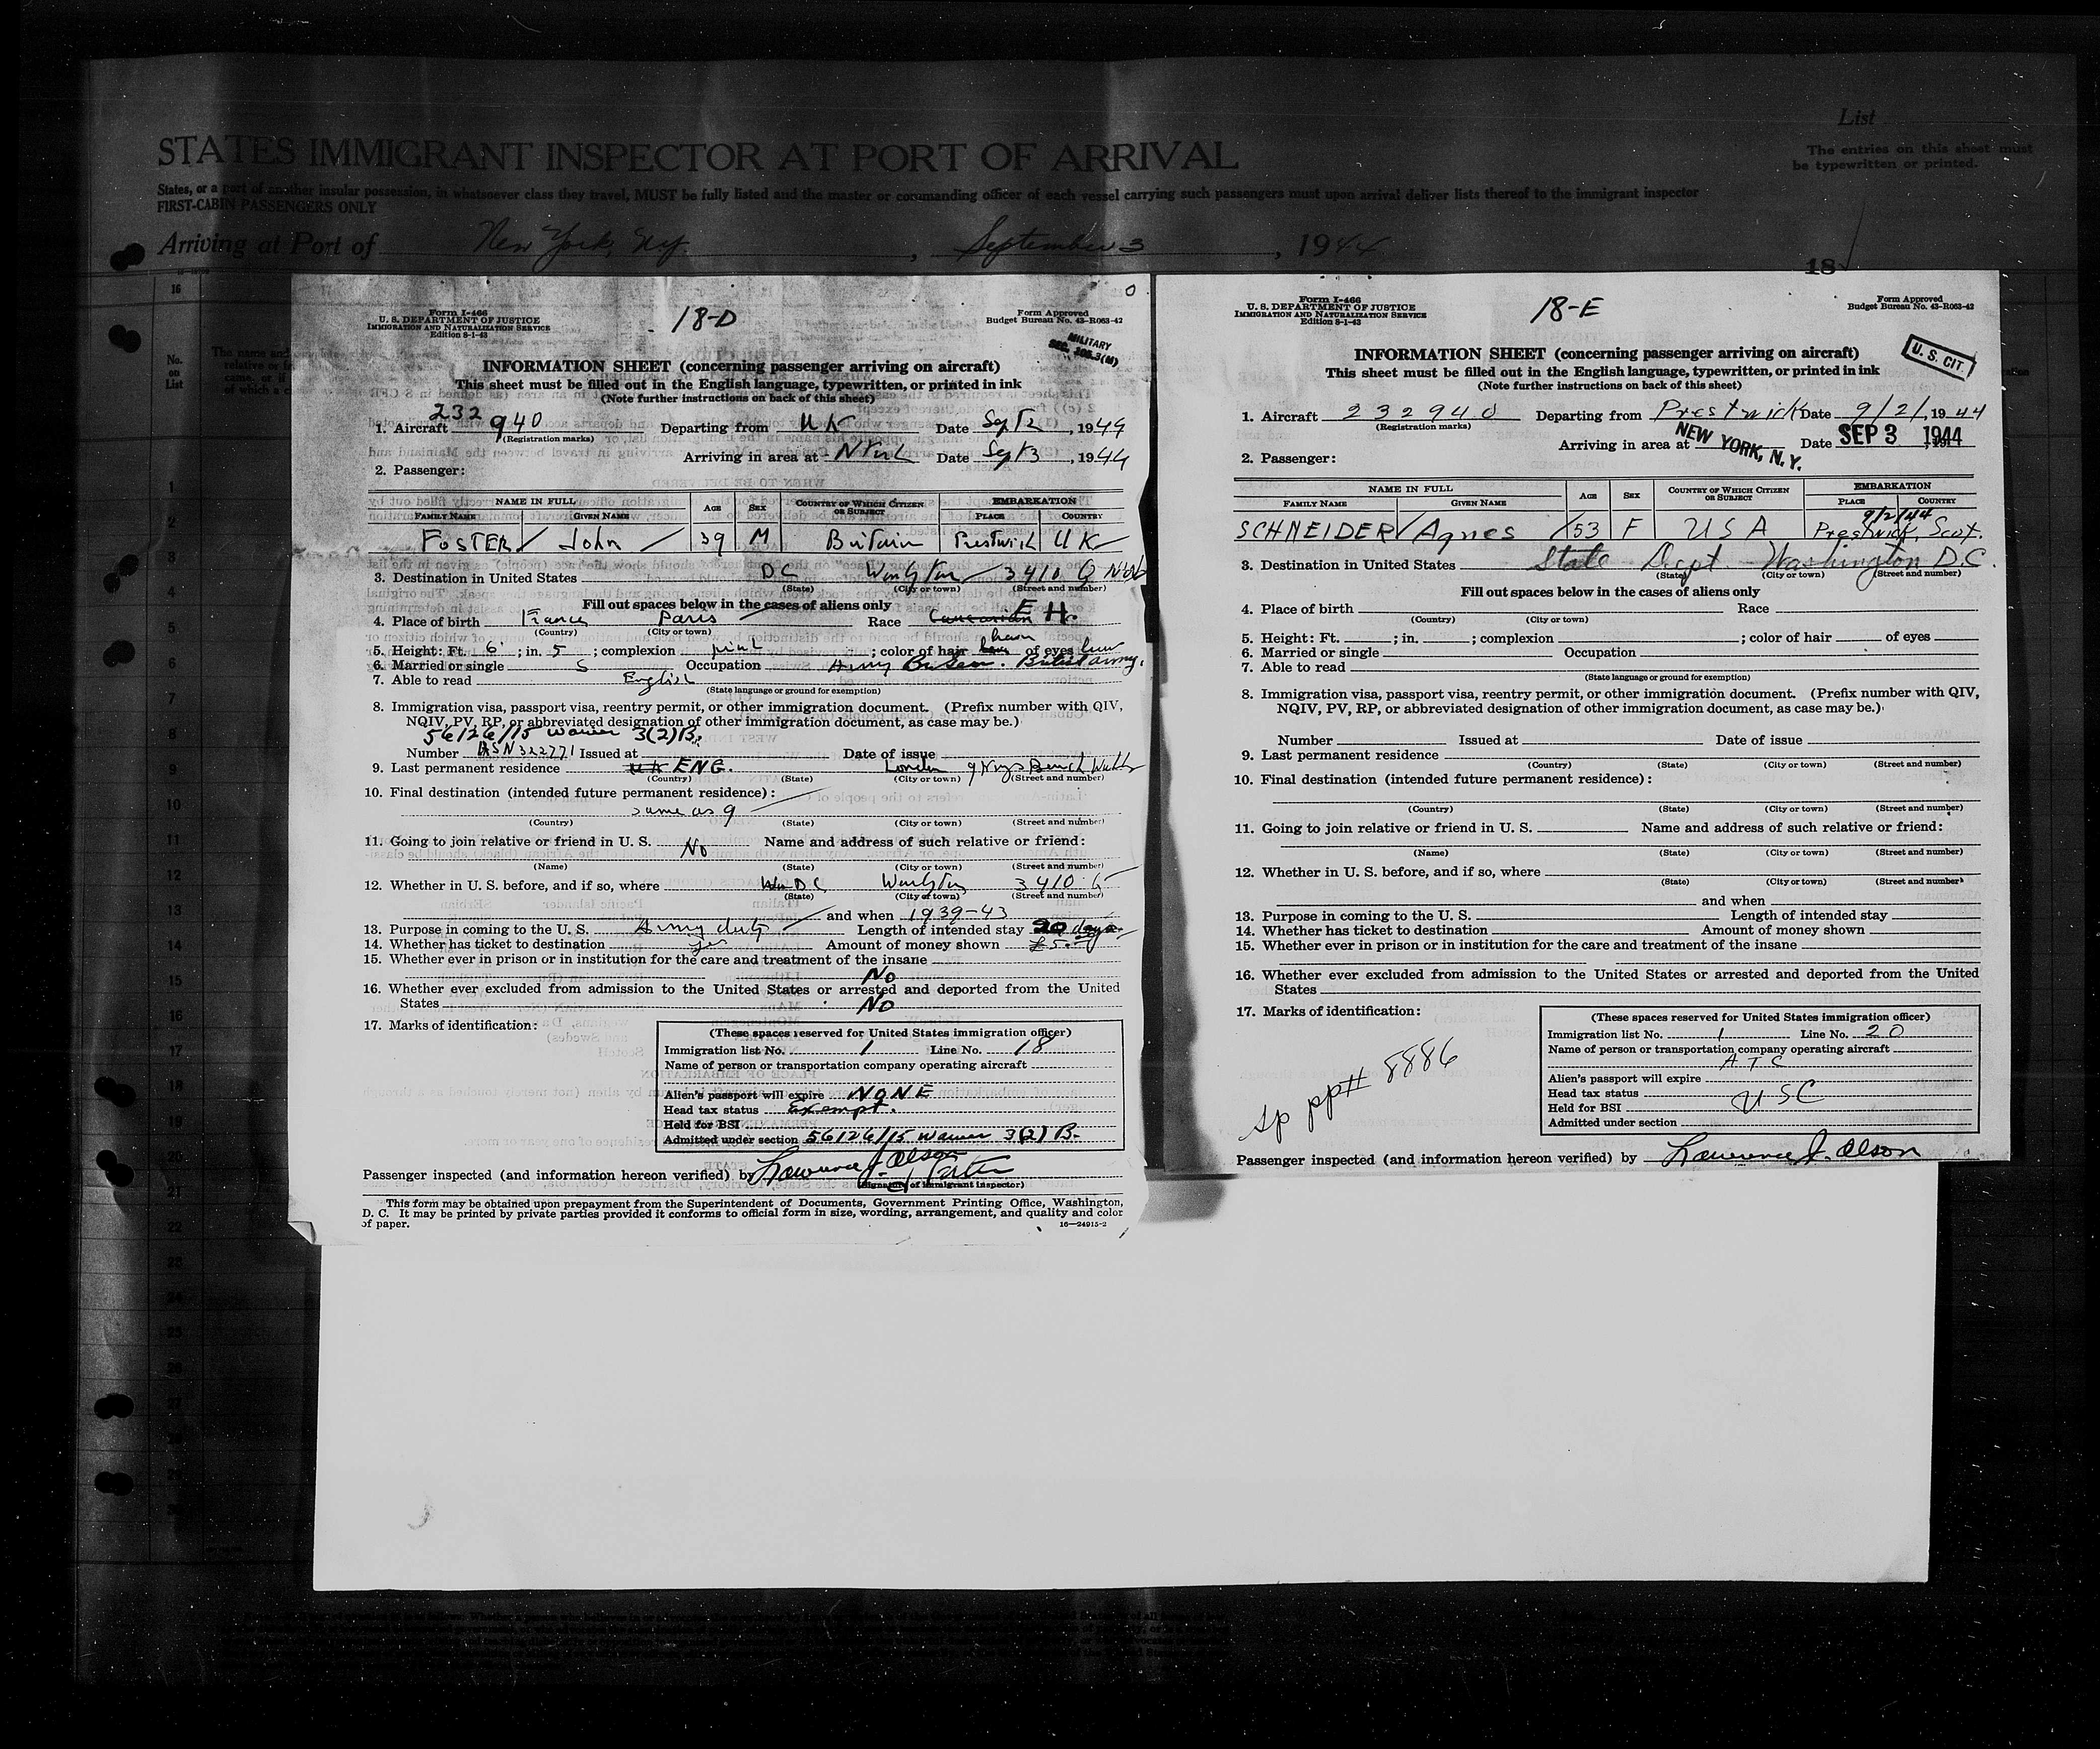 List
STATES IMMIGRANT INSPECTOR AT PORT OF ARRIVAL
The entries on this sheet must
be typewritten or printed.
States, or a port of another insular possession, in whatsoever class they travel, MUST be fully listed and the master or commanding officer of each vessel carrying such passengers must upon arrival deliver lists thereof to the immigrant inspector
FIRST-CABIN PASSENGERS ONLY
Arriving at Port of New York, N.Y. , September 3 , 1944
18
16
No.
on
List
1
2
3
4
5
6
7
8
9
10
11
12
13
14
15
16
17
18
19
20
21
22
23
24
25
Form I-466
U. S. DEPARTMENT OF JUSTICE
IMMIGRATION AND NATURALIZATION SERVICE
Edition 8-1-43
18-D
Form Approved
Budget Bureau No. 43-R063-42
MILITARY
INFORMATION SHEET (concerning passenger arriving on aircraft)
This sheet must be filled out in the English language, typewritten, or printed in ink
(Note further instructions on back of this sheet)
1. Aircraft 232 940 Departing from UK Date Sept 2, 1944
(Registration marks)
Arriving in area at Date Sept 3, 1944
2. Passenger:
NAME IN FULL AGE SEX COUNTRY OF WHICH CITIZEN OR SUBJECT EMBARKATION
FAMILY NAME GIVEN NAME PLACE COUNTRY
FOSTER John 39 M Britain Prestwick UK
3. Destination in United States DC 3410
(State) (City or town) (Street and number)
Fill out spaces below in the cases of aliens only
4. Place of birth France Paris Race Caucasian E H.
(Country) (City or town)
5. Height: Ft. 6 ; in. 5 ; complexion pink ; color of hair of eyes
6. Married or single S Occupation Army British army.
7. Able to read English
(State language or ground for exemption)
8. Immigration visa, passport visa, reentry permit, or other immigration document. (Prefix number with QIV,
NQIV, PV, RP, or abbreviated designation of other immigration document, as case may be.)
56126/15 waiver 3(2)B.
Number ASN322771 Issued at Date of issue
9. Last permanent residence UK ENG. London 9 Kings Bench
(Country) (State) (City or town) (Street and number)
10. Final destination (intended future permanent residence):
same as 9
(Country) (State) (City or town) (Street and number)
11. Going to join relative or friend in U. S. No Name and address of such relative or friend:
(Name) (State) (City or town) (Street and number)
12. Whether in U. S. before, and if so, where DC 3410
(State) (City or town) (Street and number)
and when 1939-43
13. Purpose in coming to the U. S. Army duty Length of intended stay days
14. Whether has ticket to destination yes Amount of money shown
15. Whether ever in prison or in institution for the care and treatment of the insane
No
16. Whether ever excluded from admission to the United States or arrested and deported from the United
States No
17. Marks of identification:
(These spaces reserved for United States immigration officer)
Immigration list No. 1 Line No. 18
Name of person or transportation company operating aircraft
Alien's passport will expire NONE
Head tax status Exempt.
Held for BSI
Admitted under section 56126/15 waiver 3(2)B.
Passenger inspected (and information hereon verified) by Lawrence J. Olson
(Signature of immigrant inspector)
This form may be obtained upon prepayment from the Superintendent of Documents, Government Printing Office, Washington,
D. C. It may be printed by private parties provided it conforms to official form in size, wording, arrangement, and quality and color
of paper. 16—24915-2
Form I-466
U. S. DEPARTMENT OF JUSTICE
IMMIGRATION AND NATURALIZATION SERVICE
Edition 8-1-43
18-E
Form Approved
Budget Bureau No. 43-R063-42
U. S. CIT.
INFORMATION SHEET (concerning passenger arriving on aircraft)
This sheet must be filled out in the English language, typewritten, or printed in ink
(Note further instructions on back of this sheet)
1. Aircraft 232940 Departing from Prestwick Date 9/2/, 1944
(Registration marks)
Arriving in area at NEW YORK, N.Y. Date SEP 3 1944
2. Passenger:
NAME IN FULL AGE SEX COUNTRY OF WHICH CITIZEN OR SUBJECT EMBARKATION
FAMILY NAME GIVEN NAME PLACE COUNTRY
9/2/44
SCHNEIDER Agnes 53 F USA Prestwick, Scot.
3. Destination in United States State Dept Washington D.C.
(State) (City or town) (Street and number)
Fill out spaces below in the cases of aliens only
4. Place of birth Race
(Country) (City or town)
5. Height: Ft. ; in. ; complexion ; color of hair of eyes
6. Married or single Occupation
7. Able to read
(State language or ground for exemption)
8. Immigration visa, passport visa, reentry permit, or other immigration document. (Prefix number with QIV,
NQIV, PV, RP, or abbreviated designation of other immigration document, as case may be.)
Number Issued at Date of issue
9. Last permanent residence
(Country) (State) (City or town) (Street and number)
10. Final destination (intended future permanent residence):
(Country) (State) (City or town) (Street and number)
11. Going to join relative or friend in U. S. Name and address of such relative or friend:
(Name) (State) (City or town) (Street and number)
12. Whether in U. S. before, and if so, where
(State) (City or town) (Street and number)
and when
13. Purpose in coming to the U. S. Length of intended stay
14. Whether has ticket to destination Amount of money shown
15. Whether ever in prison or in institution for the care and treatment of the insane
16. Whether ever excluded from admission to the United States or arrested and deported from the United
States
17. Marks of identification:
sp pp# 8886
(These spaces reserved for United States immigration officer)
Immigration list No. 1 Line No. 20
Name of person or transportation company operating aircraft
ATC
Alien's passport will expire
Head tax status
Held for BSI USC
Admitted under section
Passenger inspected (and information hereon verified) by Lawrence J. Olson